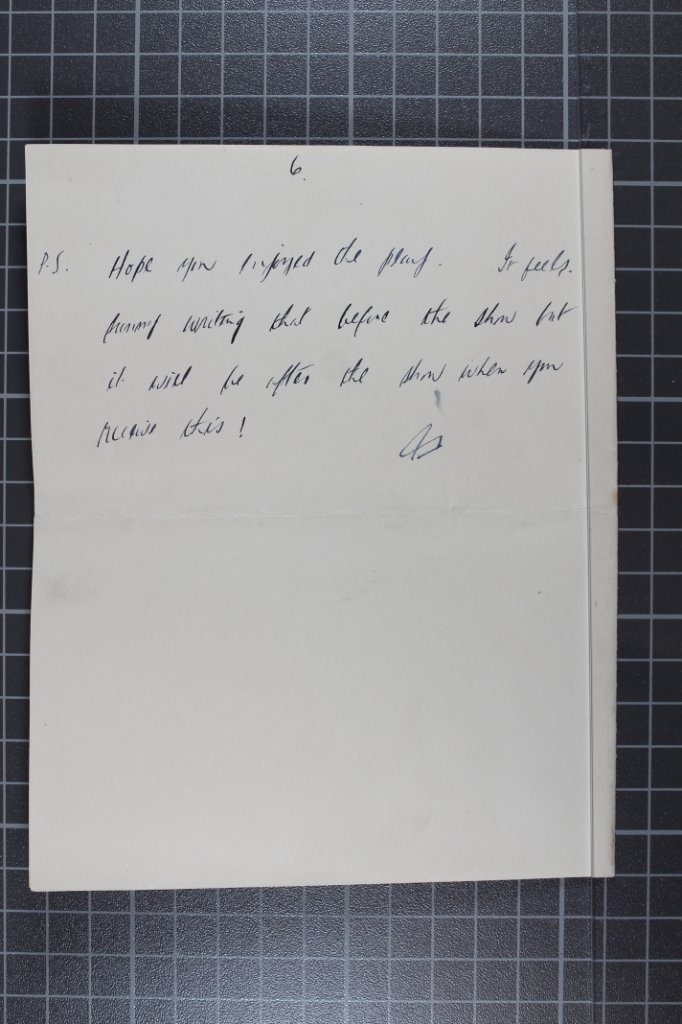 6.
P.S. Hope you enjoyed the play. It feels
funny writing that before the show but
it will be after the show when you
receive this!